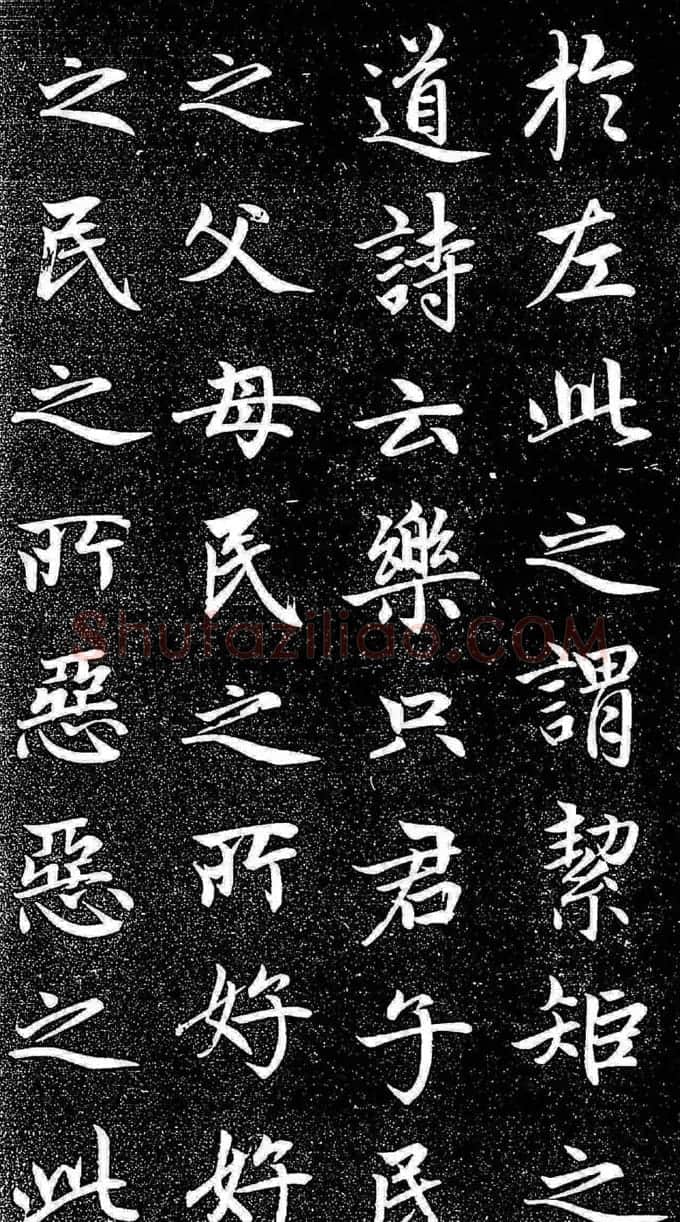 於左此之謂絜矩之
道詩云樂只君子民
之父母民之所好好
之民之所惡惡之此
Shufaziliao.COM